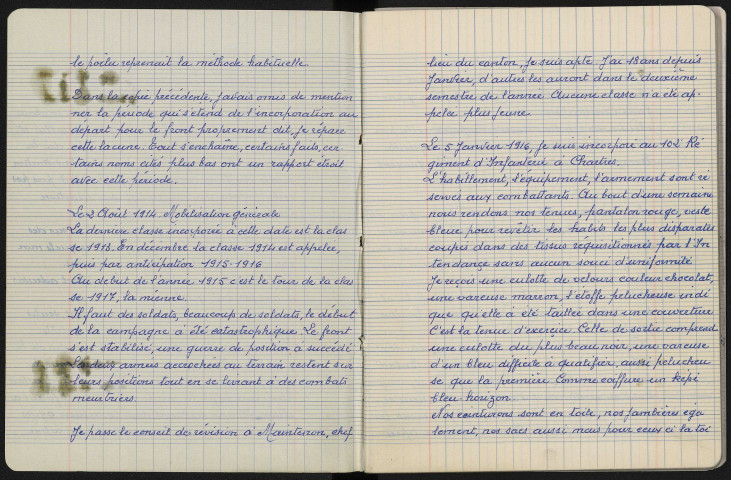 le poilu reprenait la méthode habituelle.
Dans la copie précédente, j'avais omis de mention
ner la période qui s'étend de l'incorporation au
départ pour le front proprement dit, je répare
cette lacune. Tout s'enchaîne, certains faits, cer-
tains noms cités plus bas ont un rapport étroit
avec cette période.
Le 2 Août 1914. Mobilisation générale
La dernière classe incorporée à cette date est la clas
se 1913. En décembre la classe 1914 est appelée,
puis par anticipation 1915-1916
Au début de l'année 1915 c'est le tour de la clas
se 1917, la mienne.
Il faut des soldats, beaucoup de soldats, le début
de la campagne a été catastrophique. Le front
s'est stabilisé, une guerre de position a succédé
Les deux armées accrochées au terrain restent sur
leurs positions tout en se livrant à des combats
meurtriers.
Je passe le conseil de révision à Maintenon, chef
lieu du canton, je suis apte. J'ai 18 ans depuis
Janvier, d'autres les auront dans le deuxième
semestre de l'année. Aucune classe n'a été ap-
pelée plus jeune.
Le 5 Janvier 1916, je suis incorporé au 102e Ré
giment d'Infanterie à Chartres.
L'habillement, l'équipement, l'armement sont ré
servés aux combattants. Au bout d'une semaine
nous rendons nos tenues, pantalon rouge, veste
bleue pour revêtir les habits les plus disparates
coupés dans des tissus réquisitionnés par l'In
tendance sans aucun souci d'uniformité
Je reçois une culotte de velours couleur chocolat,
une vareuse marron, l'étoffe pelucheuse indi
que qu'elle a été taillée dans une couverture
C'est la tenue d'exercice. Celle de sortie comprend
une culotte du plus beau noir, une vareuse
d'un bleu difficile à qualifier, aussi pelucheu
se que la première. Comme coiffure un képi
bleu-horizon.
Nos ceinturons sont en toile, nos jambières éga
lement, nos sacs aussi mais pour ceux ci la toi